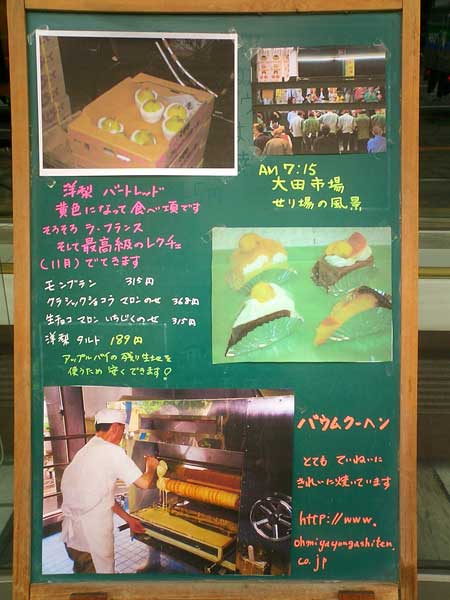 AM 7:15
大田市場
せり場の風景
洋梨 バートレッド
黄色になって食べ頃です
そろそろ ラ・フランス
そして最高級のレクチェ
(11月)でてきます
モンブラン 315円
クラシックショコラ マロンのせ 368円
生チョコ マロン いちじくのせ 315円
洋梨 タルト 189円
アップルパイの残り生地を
使うため 安くできます!
バウムクーヘン
とても ていねいに
きれいに焼いています
http://www.
ohmiyayougashiten.
co.jp